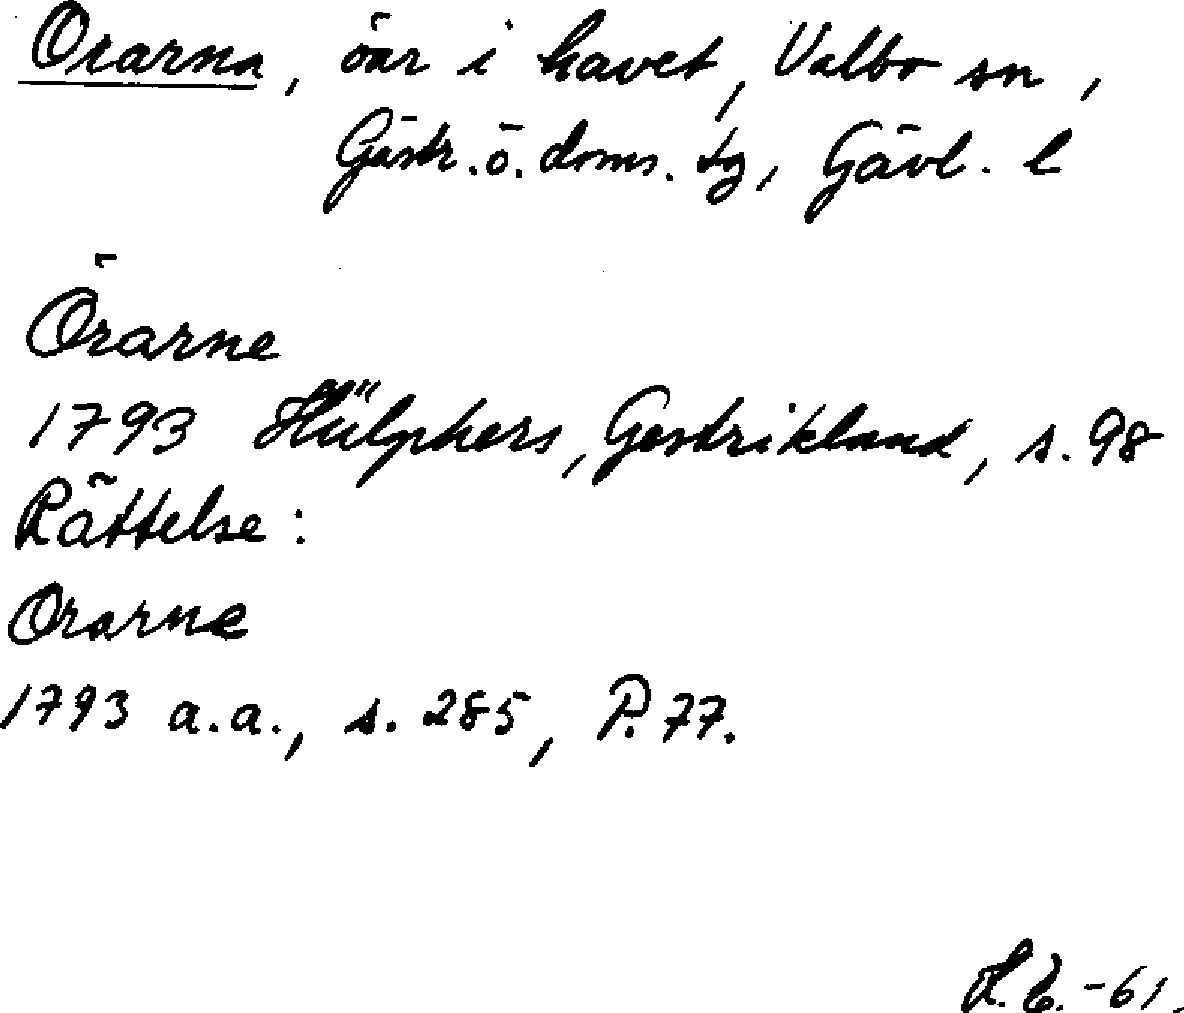 Orarna, öar i havet, Valbo sn,
Gästr. ö. doms. tg, Gävl. l
Örarne
1793 Hülphers, Gestrikland, s. 98
Rättelse:
Orarne
1793 a.a., s. 285, P. 77.
-61.